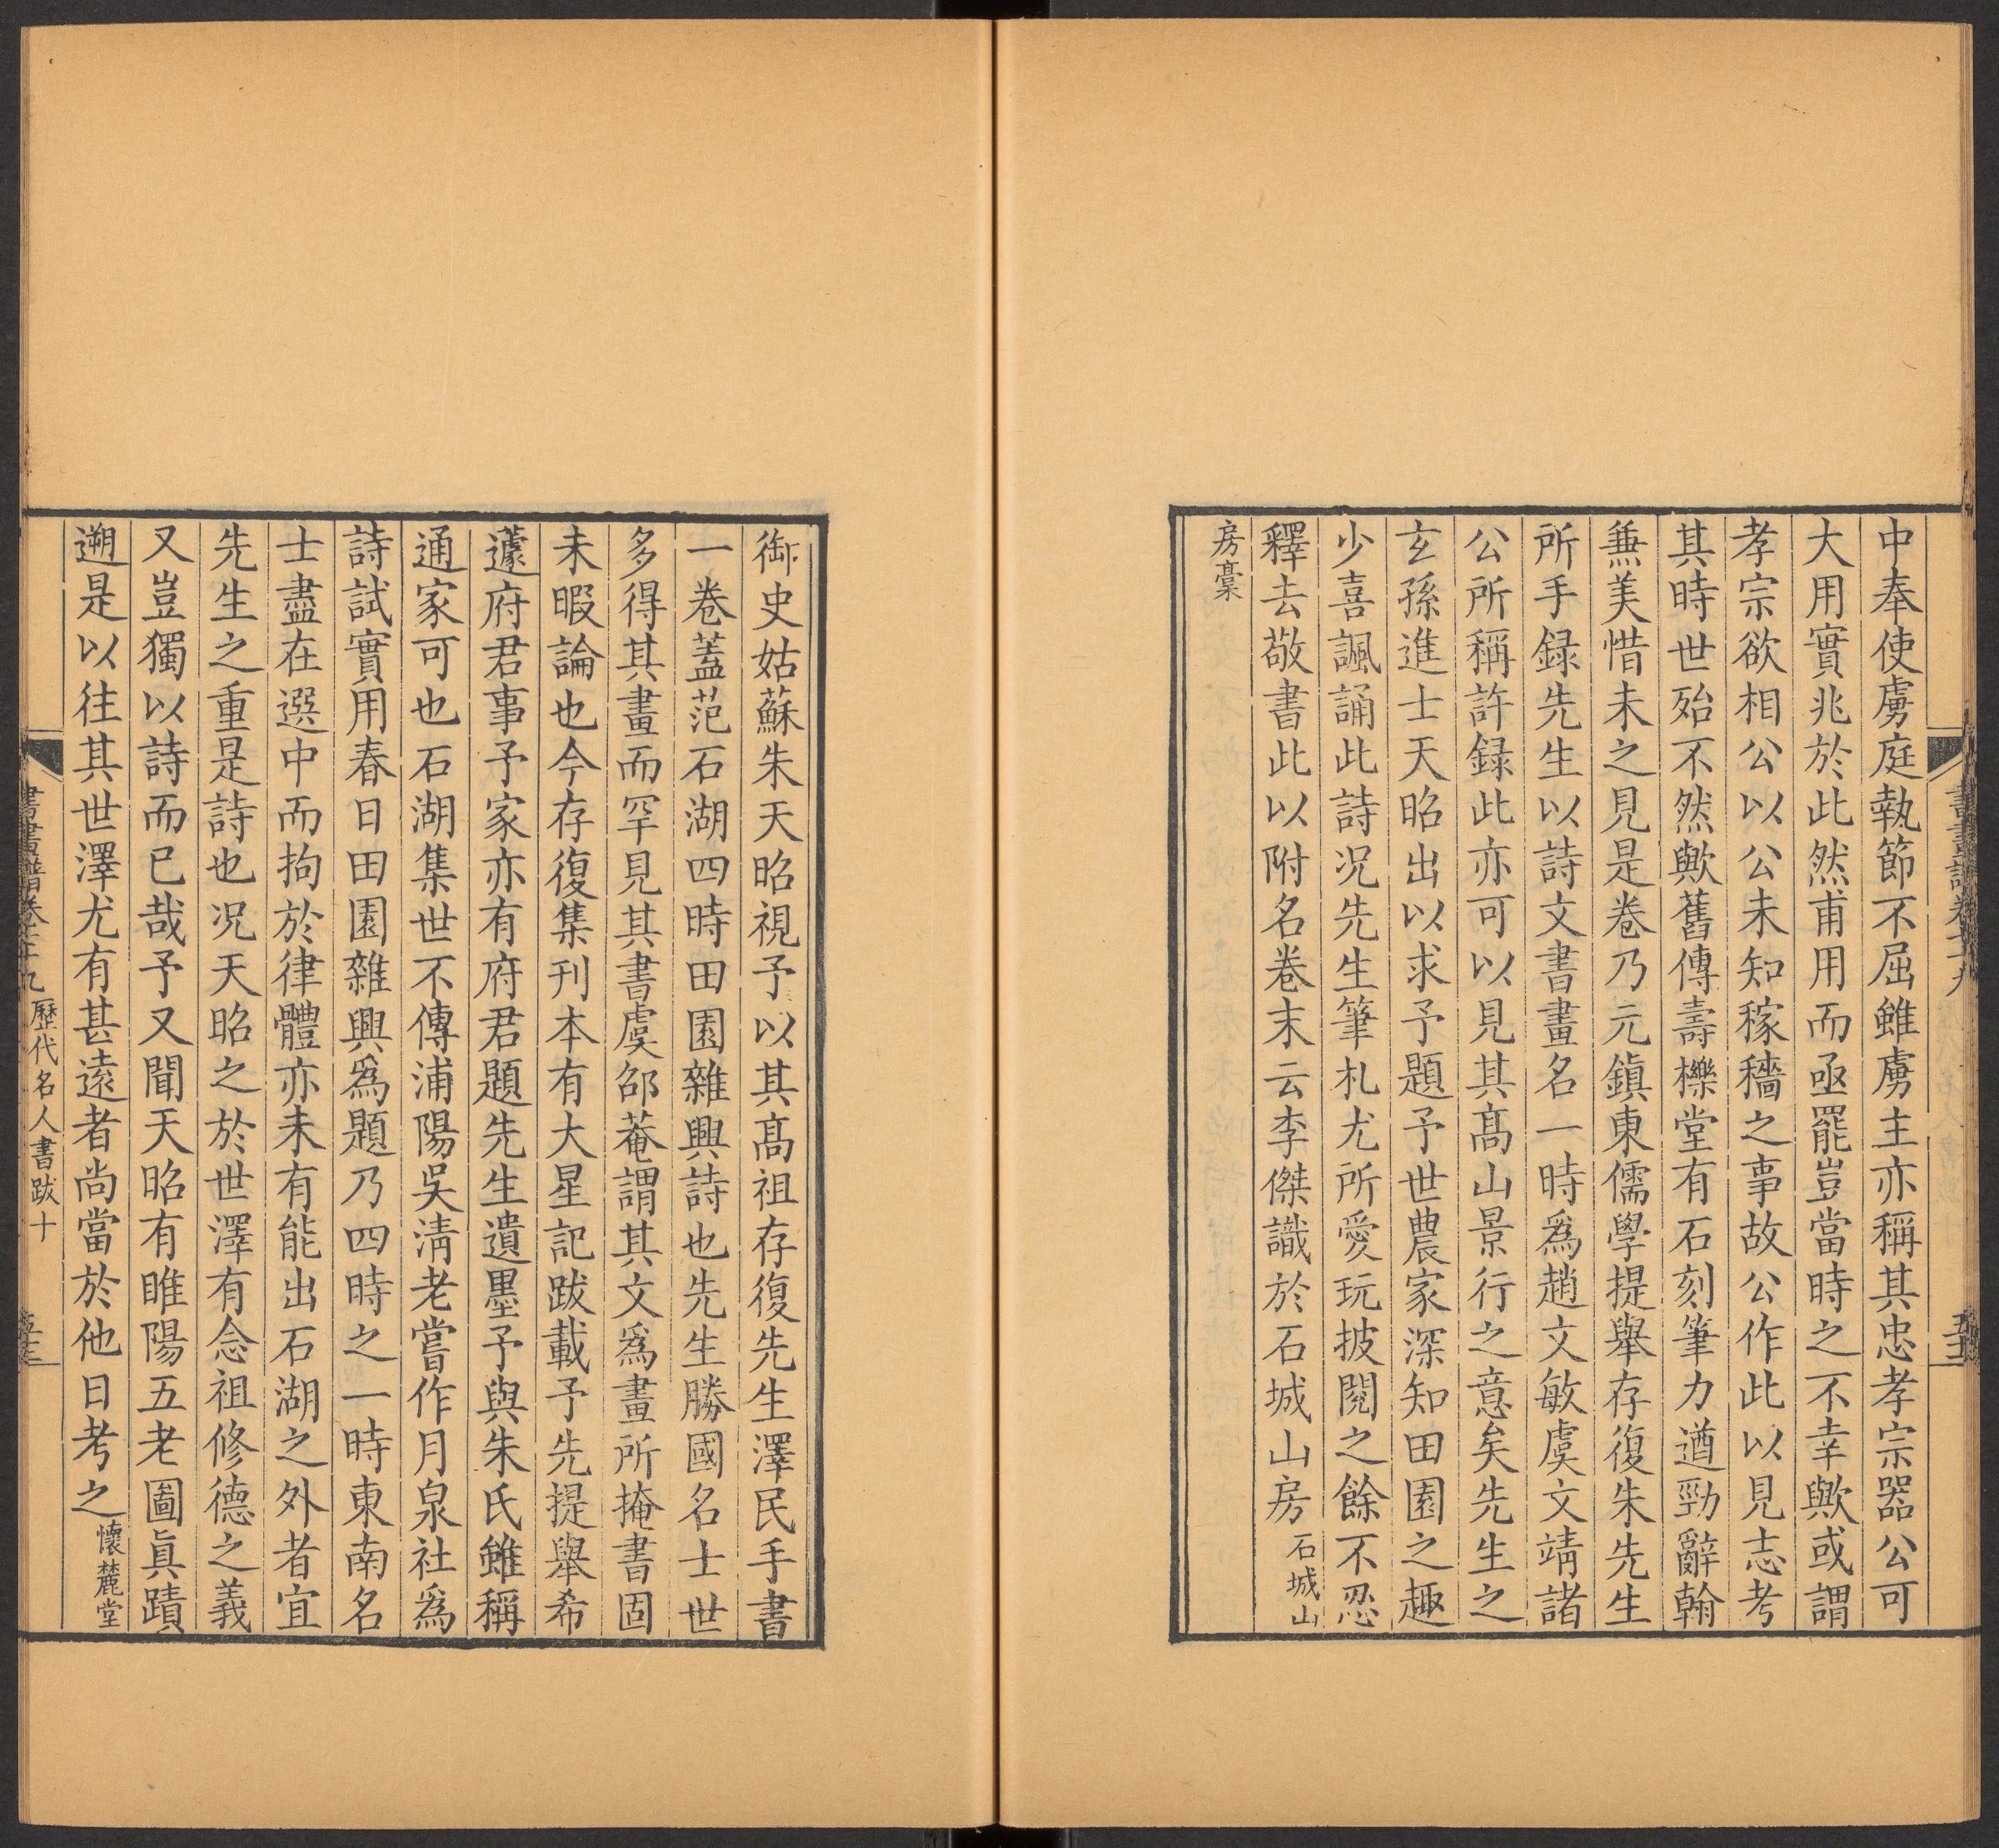 中奉使虜庭執節不屈雖虜主亦稱其忠孝宗器公可
大用實兆於此然甫用而亟罷豈當時之不幸歟或謂
孝宗欲相公以公未知稼穡之事故公作此以見志考
其時世殆不然歟舊傳壽櫟堂有石刻筆力遒勁辭翰
兼美惜未之見是卷乃元鎮東儒學提舉存復朱先生
所手録先生以詩文書畫名一時爲趙文敏虞文靖諸
公所稱許録此亦可以見其高山景行之意矣先生之
玄孫進士天昭出以求予題予世農家深知田園之趣
少喜諷誦此詩况先生筆札尤所愛玩披閱之餘不忍
釋去敬書此以附名卷末云李傑識於石城山房 石城山
房稾
御史姑蘇朱天昭視予以其高祖存復先生澤民手書
一卷蓋范石湖四時田園雜興詩也先生勝國名士世
多得其畫而罕見其書虞邵菴謂其文爲畫所掩書固
未暇論也今存復集刊本有大星記跋載予先提舉希
蘧府君事予家亦有府君題先生遺墨予與朱氏雖稱
通家可也石湖集世不傳浦陽吳清老嘗作月泉社爲
詩試實用春日田園雜興爲題乃四時之一時東南名
士盡在選中而拘於律體亦未有能出石湖之外者宜
先生之重是詩也况天昭之於世澤有念祖修德之義
又豈獨以詩而已哉予又聞天昭有睢陽五老圖真蹟
遡是以往其世澤尤有甚遠者尚當於他日考之 懷麓堂
歷代名人書跋十